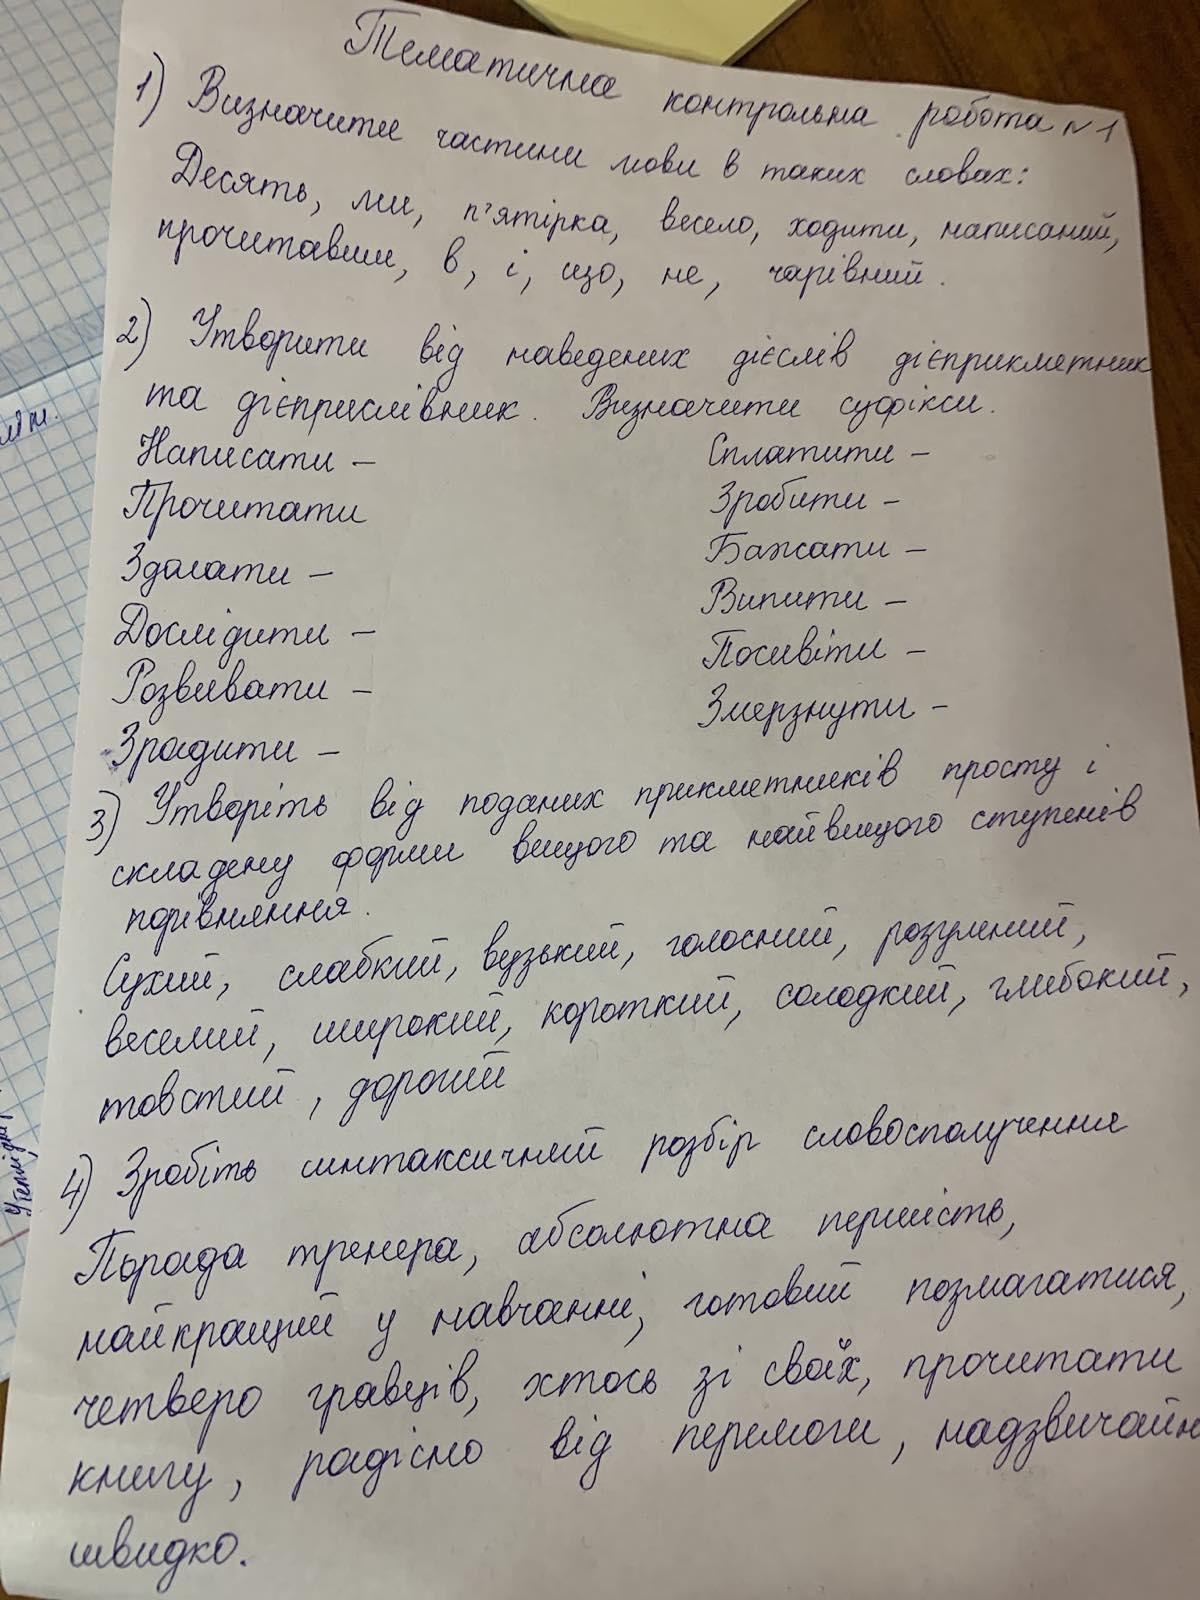 Тематична контрольна робота №1
1) Визначити частини мови в таких словах:
Десять, ми, п'ятірка, весело, ходити, написаний,
прочитавши, в, і, що, не, чарівний.
2) Утворити від наведених дієслів дієприкметник
та дієприслівник. Визначити суфікси.
Написати –
Прочитати
Здолати –
Дослідити –
Розвивати –
Зрадити –
Сплатити –
Зробити –
Бажати –
Випити –
Посивіти –
Змерзнути –
3) Утворіть від поданих прикметників просту і
складену форми вищого та найвищого ступенів
порівняння.
Сухий, слабкий, вузький, голосний, розумний,
веселий, широкий, короткий, солодкий, глибокий,
товстий, дорогий
4) Зробіть синтаксичний розбір словосполучення
Порада тренера, абсолютна першість,
найкращий у навчанні, готовий позмагатися,
четверо гравців, хтось зі своїх, прочитати
книгу, радісно від перемоги, надзвичайн
швидко.